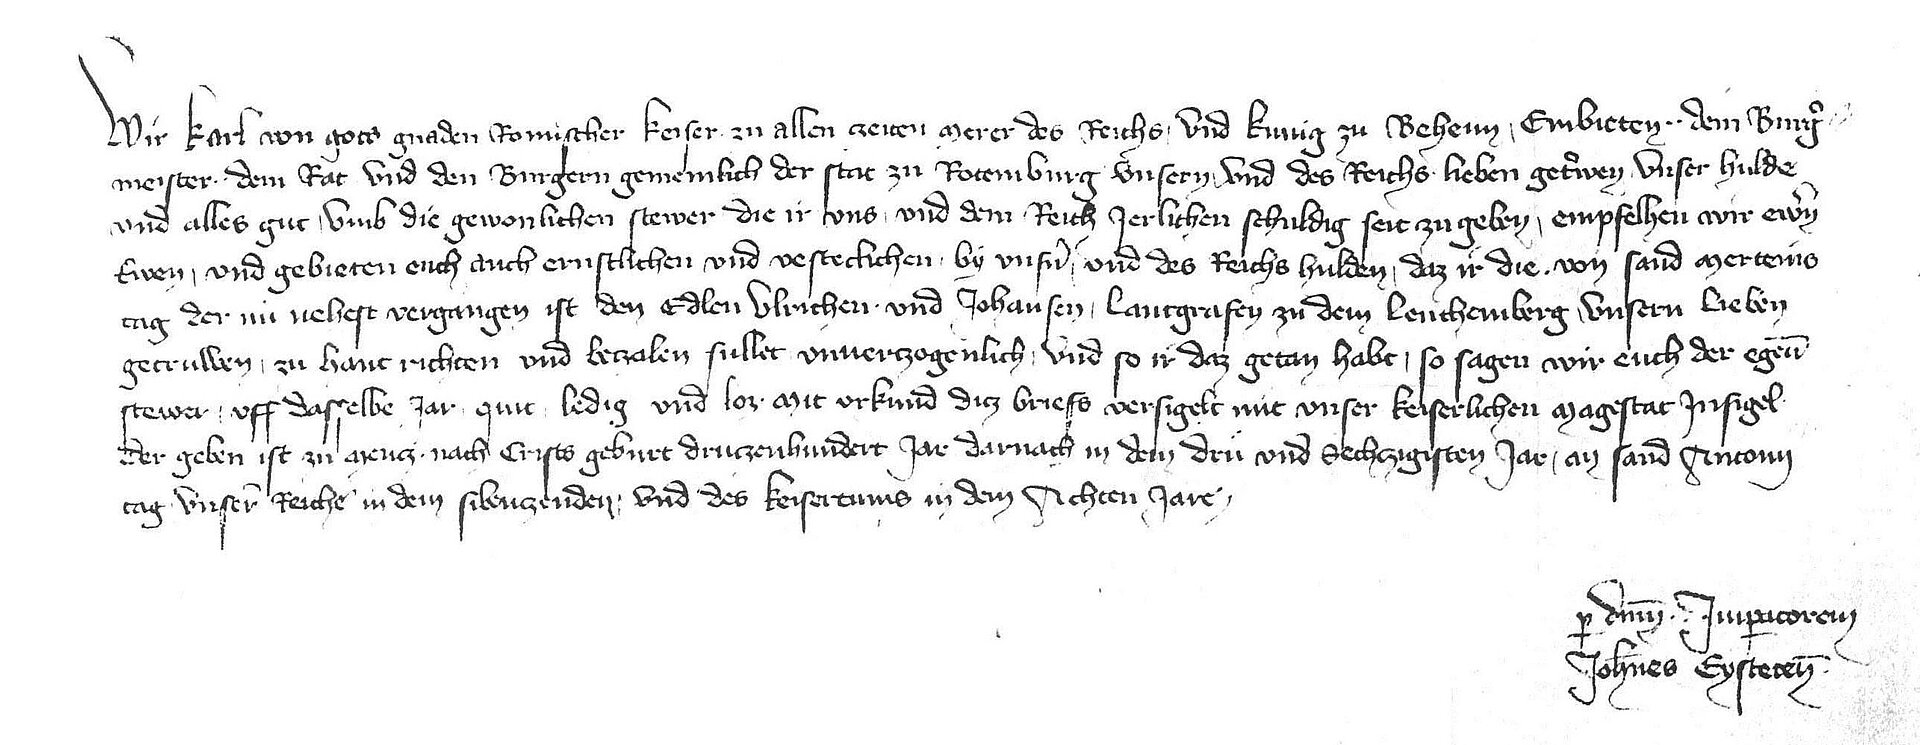 Wir Karl von gots gnaden Romischer keiser zu allen zeiten merer des Reichs und kunig zu Beheim, Embieten dem Burg͛
meister dem Rat und den Burgern gemeinlich der stat zu Rotemburg unsern und des Reichs lieben getr͛wen unser hulde
und alles gut, umb die gewonlichen stewer die ir uns und dem Reich Jerlichen schuldig seit zu geben, empfelhen wir ew͛n
Ewen, und gebieten euch auch ernstlichen und vesteclichen by unsn͛ und des Reichs hulden, daz ir die von sand merteins
tag der nu nehest vergangen ist den Edlen Ulrichen und Johansen, Lantgrafen zu dem Leuthemberg, unsern lieben
getruwen, zu hant richten und betzalen sullet unvertzogenlich, und so ir daz getan habt, so sagen wir euch der egen̄
stewer, uff dasselbe Jar quit ledig und loz mit urkund ditz briefs versigelt mit unser keiserlichen Magestat Insigel
der geben ist zu Mentz nach Crists geburt drutzenhundert Jar darnach in dem dru und Sechtzigisten Jar, an sand Antonii
tag unser͛ Reiche in dem sibentzenden, und des keisertums in dem Achten Jare,
p̱ dnm̄ Imp̱atorem
Joh̄nes Eysteten̄